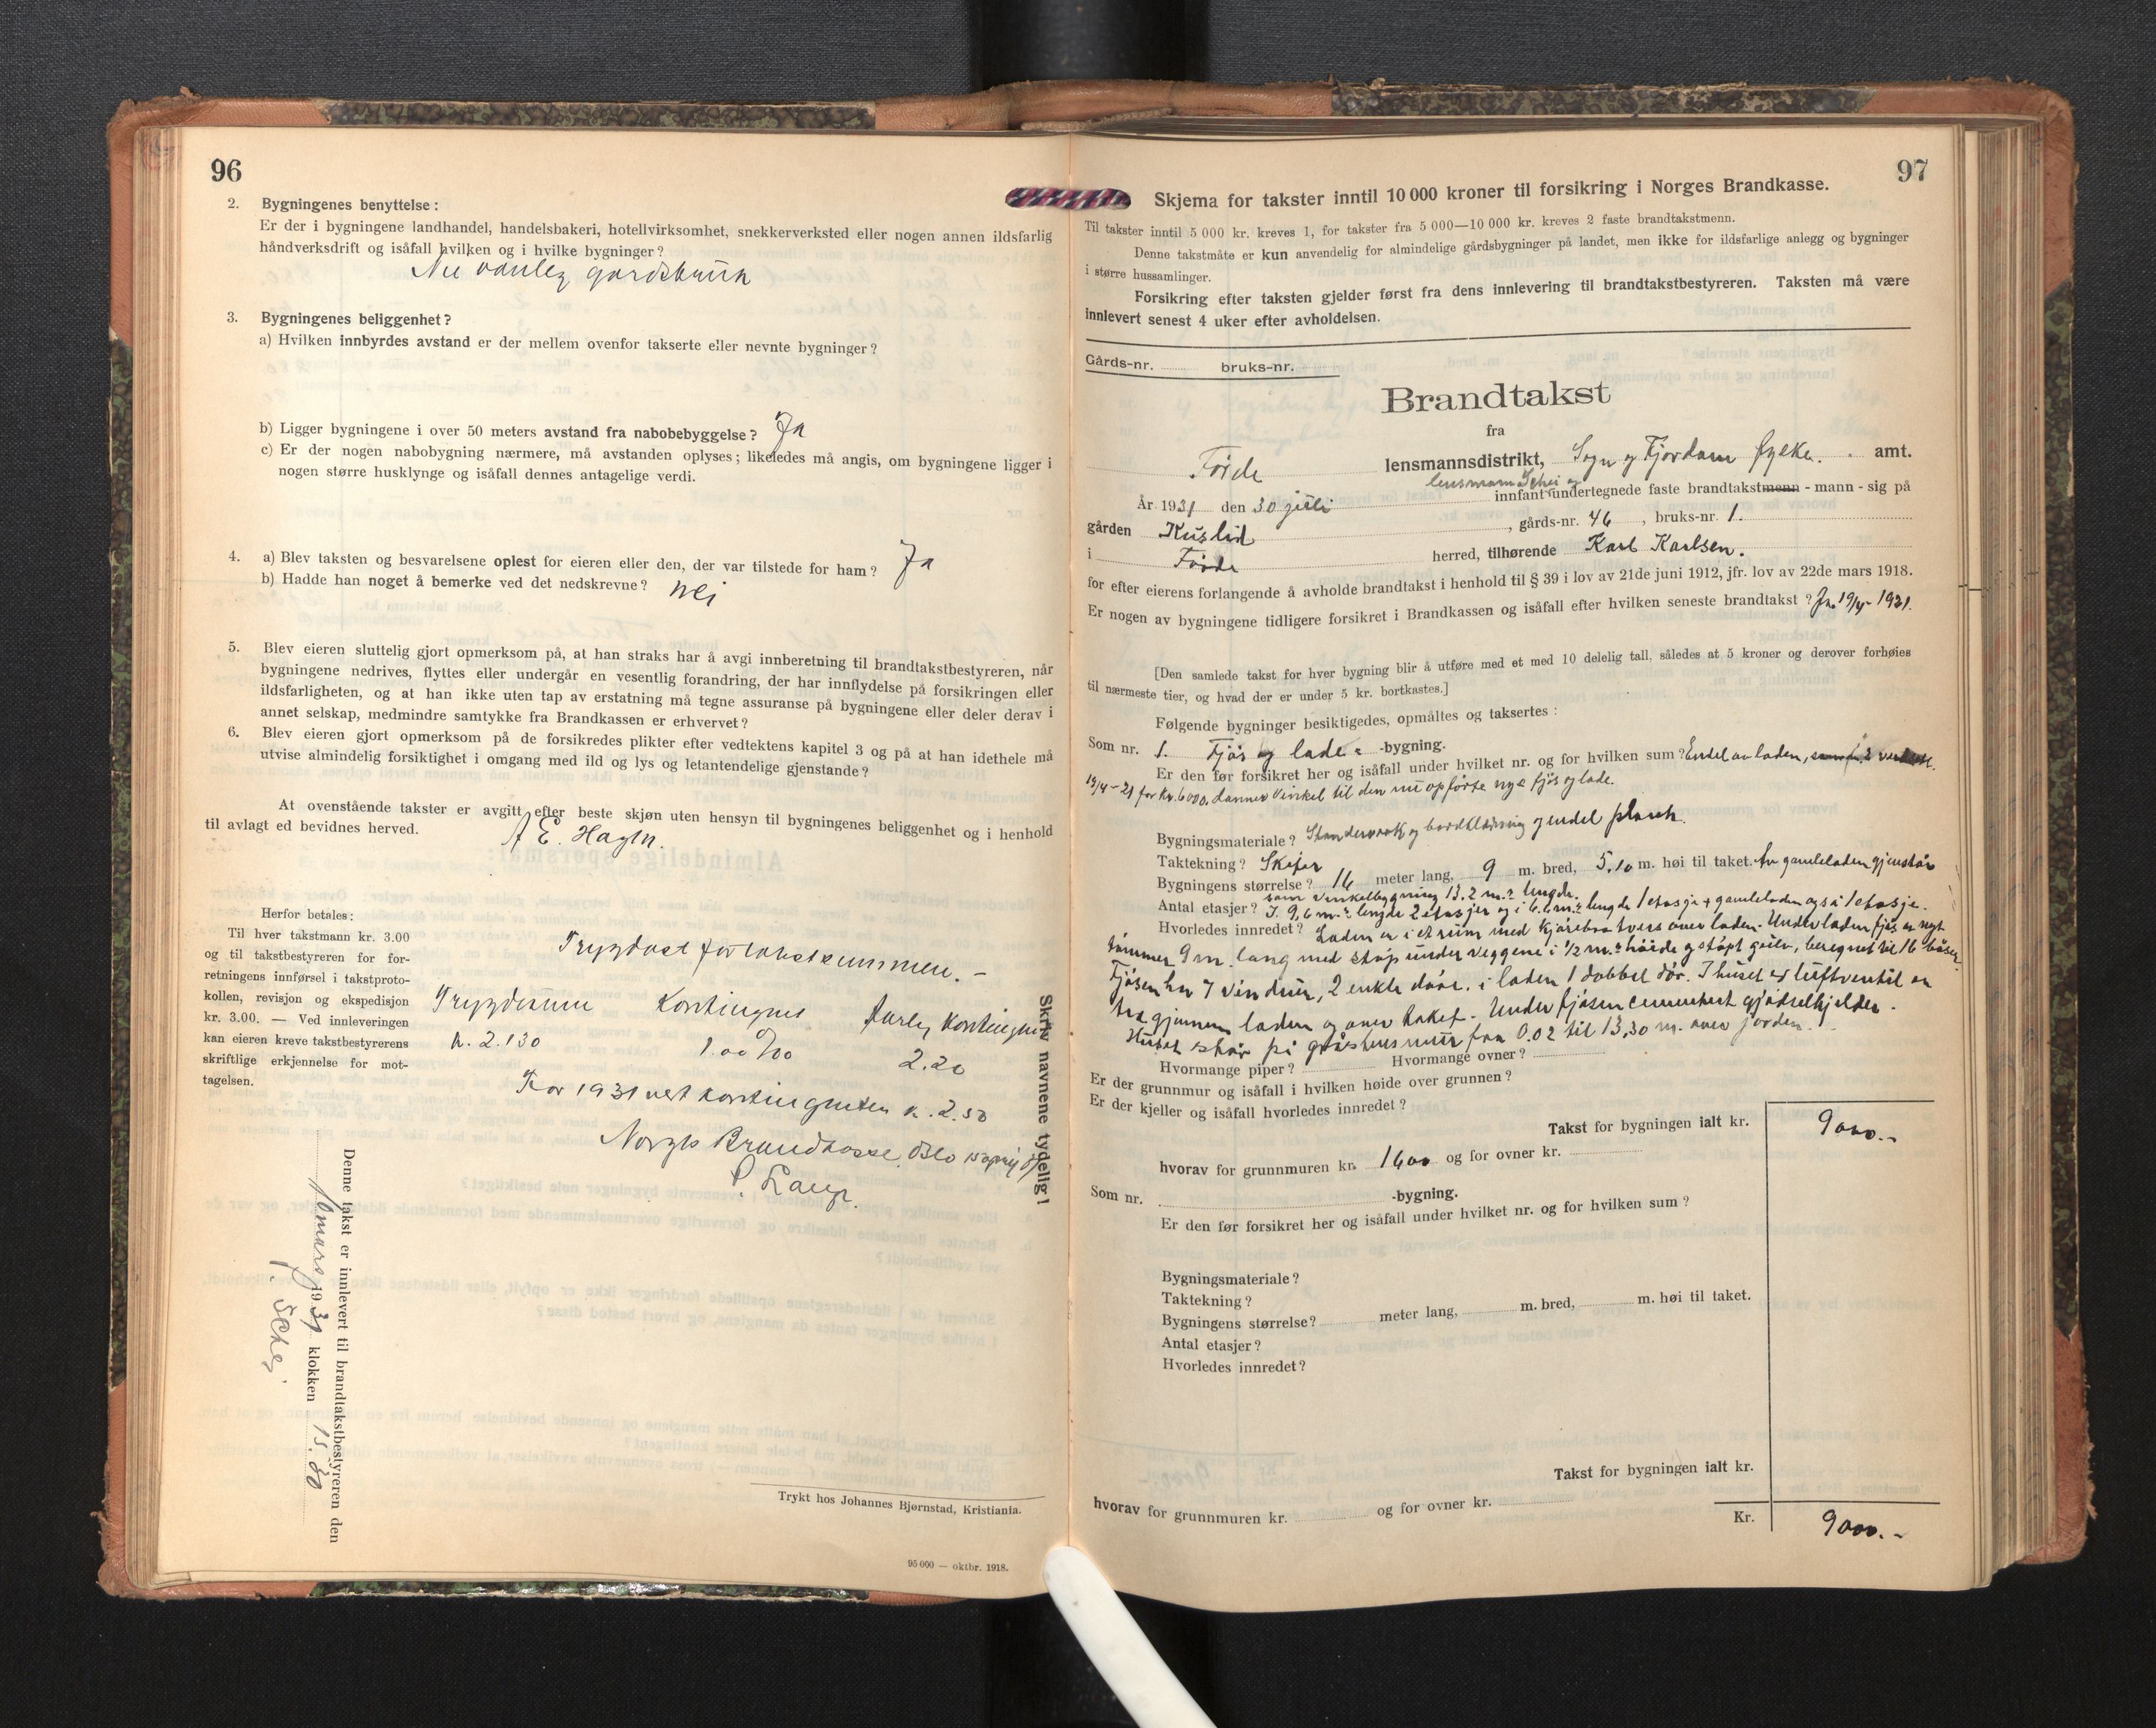 96
2. Bygningenes benyttelse:
Er der i bygningene landhandel, handelsbakeri, hotellvirksomhet, snekkerverksted eller nogen annen ildsfarlig
håndverksdrift og isåfall hvilken og i hvilke bygninger?
vanleg gardsbruk
3. Bygningenes beliggenhet?
a) Hvilken innbyrdes avstand er der mellem ovenfor takserte eller nevnte bygninger?
b) Ligger bygningene i over 50 meters avstand fra nabobebyggelse? Ja
c) Er der nogen nabobygning nærmere, må avstanden oplyses; likeledes må angis, om bygningene ligger i
nogen større husklynge og isåfall dennes antagelige verdi.
4. a) Blev taksten og besvarelsene oplest for eieren eller den, der var tilstede for ham? Ja
b) Hadde han noget å bemerke ved det nedskrevne? nei
5. Blev eieren sluttelig gjort opmerksom på, at han straks har å avgi innberetning til brandtakstbestyreren, når
bygningene nedrives, flyttes eller undergår en vesentlig forandring, der har innflydelse på forsikringen eller
ildsfarligheten, og at han ikke uten tap av erstatning må tegne assuranse på bygningene eller deler derav i
annet selskap, medmindre samtykke fra Brandkassen er erhvervet?
6. Blev eieren gjort opmerksom på de forsikredes plikter efter vedtektens kapitel 3 og på at han idethele må
utvise almindelig forsiktighet i omgang med ild og lys og letantendelige gjenstande?
At ovenstående takster er avgitt efter beste skjøn uten hensyn til bygningenes beliggenhet og i henhold
til avlagt ed bevidnes herved.
A E. Hagen.
Herfor betales:
Til hver takstmann kr. 3.00
og til takstbestyreren for for-
retningens innførsel i takstproto-
kollen, revisjon og ekspedisjon
kr. 3.00. — Ved innleveringen
kan eieren kreve takstbestyrerens
skriftlige erkjennelse for mot-
tagelsen.
Trygdast for takstsummen. -
Trygdesum Kontingent Aarleg Kontingent
k. 2.130 1.00 ‰ 2.20
For 1931 vert kontingenten k. 2.50
Norges Brandkasse, Oslo 15
Skriv navnene tydelig!
Denne takst er innlevert til brandtakstbestyreren den
mars 1931 klokken 15.30
Schei
Trykt hos Johannes Bjørnstad, Kristiania.
95 000 — oktbr. 1918.
97
Skjema for takster inntil 10 000 kroner til forsikring i Norges Brandkasse.
Til takster inntil 5 000 kr. kreves 1, for takster fra 5 000—10 000 kr. kreves 2 faste brandtakstmenn.
Denne takstmåte er kun anvendelig for almindelige gårdsbygninger på landet, men ikke for ildsfarlige anlegg og bygninger
i større hussamlinger.
Forsikring efter taksten gjelder først fra dens innlevering til brandtakstbestyreren. Taksten må være
innlevert senest 4 uker efter avholdelsen.
Gårds-nr. bruks-nr.
Brandtakst
fra
Førde lensmannsdistrikt, Sogn og Fjordane fylke. amt.
lensmann Schei og
År 1931 den 30 juli innfant undertegnede faste brandtakstmenn - mann - sig på
gården Kuslid, gårds-nr. 46, bruks-nr. 1.
i Førde herred, tilhørende Karl Karlsen.
for efter eierens forlangende å avholde brandtakst i henhold til § 39 i lov av 21de juni 1912, jfr. lov av 22de mars 1918.
Er nogen av bygningene tidligere forsikret i Brandkassen og isåfall efter hvilken seneste brandtakst? Ja. 19/4 - 1921.
[Den samlede takst for hver bygning blir å utføre med et med 10 delelig tall, således at 5 kroner og derover forhøies
til nærmeste tier, og hvad der er under 5 kr. bortkastes.]
Følgende bygninger besiktigedes, opmåltes og taksertes:
Som nr. 1. Fjøs og lade -bygning.
Er den før forsikret her og isåfall under hvilket nr. og for hvilken sum? Endel av laden,
19/4 - 21 for kr. 6000. danner vinkel til den nu opførte nye fjøs og lade.
Bygningsmateriale? Standerverk og bordklædning og endel plank.
Taktekning? Skifer
Bygningens størrelse? 16 meter lang, 9 m. bred, 5.10 m. høi til taket. Av gamleladen gjenstår
som vinkelbygning 13.2 m.s lengde.
Antal etasjer? I 9,6 m.s lengde 2 etasjer og i 6.6 m.s lengde 1 etasje + gamleladen også 1 etasje.
Hvorledes innredet? Laden er i et rum med kjørebru tvers over laden. Under laden fjøs av nytt
tømmer 9 m. lang med støp under veggene i 1/2 m.s høide og støpt golv, beregnet til 16 båser.
Fjøsen har 7 vinduer, 2 enkle døre, i laden 1 dobbel dør. I huset er luftventil av
tre gjennem laden og over taket. Under fjøsen cementert gjødselkjelder.
Huset står på gråstensmur fra 0.02 til 13,30 m. over jorden.
Hvormange piper? Hvormange ovner?
Er der grunnmur og isåfall i hvilken høide over grunnen?
Er der kjeller og isåfall hvorledes innredet?
Takst for bygningen ialt kr. 9000.-
hvorav for grunnmuren kr. 1600 og for ovner kr.
Som nr. -bygning.
Er den før forsikret her og isåfall under hvilket nr. og for hvilken sum?
Bygningsmateriale?
Taktekning?
Bygningens størrelse? meter lang, m. bred, m. høi til taket.
Antal etasjer?
Hvorledes innredet?
Takst for bygningen ialt kr.
hvorav for grunnmuren kr. og for ovner kr.
Kr. 9000.-